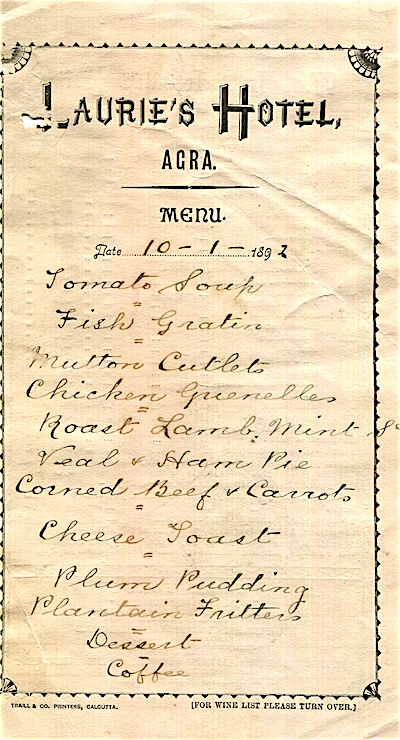 LAURIE'S HOTEL,
AGRA.
MENU.
Date 10-1-1892
Tomato Soup
=
Fish Gratin
=
Mutton Cutlets
Chicken Quenelles
=
Roast Lamb. Mint
Veal & Ham Pie
Corned Beef & Carrots
=
Cheese Toast
=
Plum Pudding
Plantain Fritters
=
Dessert
Coffee
TRAILL & CO. PRINTERS, CALCUTTA. [FOR WINE LIST PLEASE TURN OVER.]